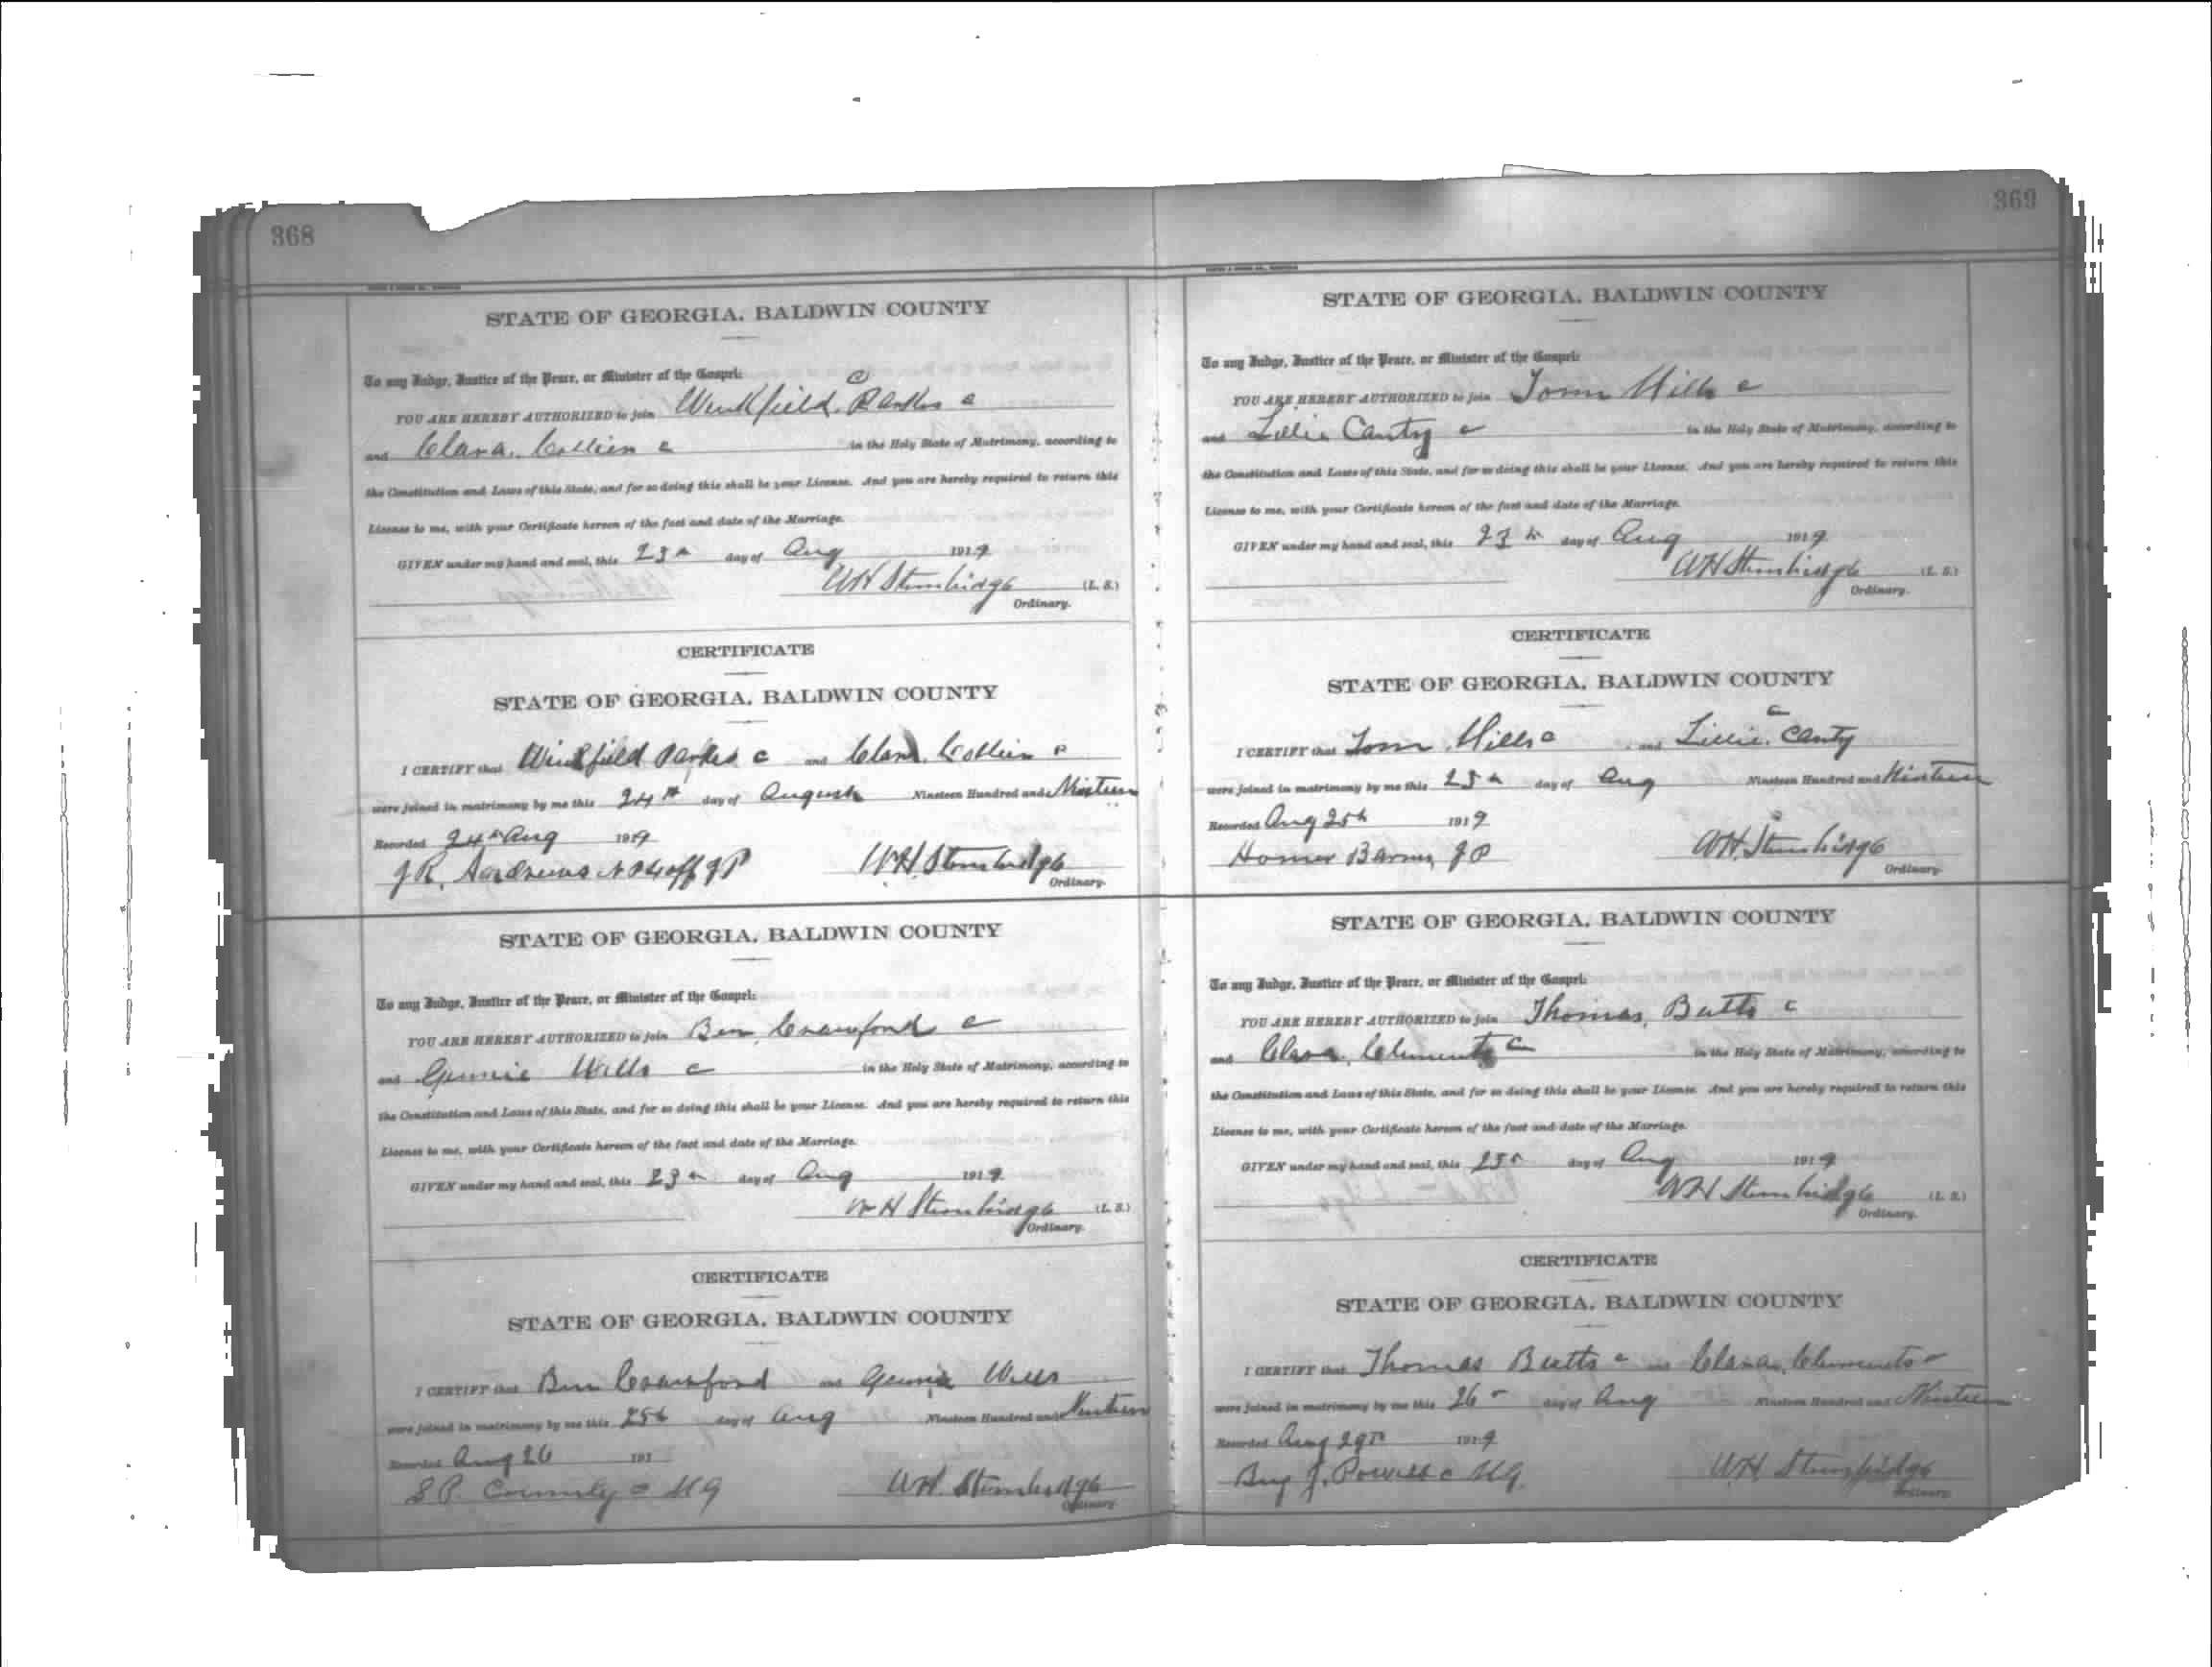 368
STATE OF GEORGIA, BALDWIN COUNTY
To any Judge, Justice of the Peace, or Minister of the Gospel:
YOU ARE HEREBY AUTHORIZED to join Winkfield Parks c
and Clara Collien c in the Holy State of Matrimony, according to
the Constitution and Laws of this State, and for so doing this shall be your License. And you are hereby required to return this
License to me, with your Certificate hereon of the fact and date of the Marriage.
GIVEN under my hand and seal, this 23 day of Aug 1919
WH Stembridge (L. S.)
Ordinary.
CERTIFICATE
STATE OF GEORGIA, BALDWIN COUNTY
I CERTIFY that Winkfield Parks c and Clara Collien c
were joined in matrimony by me this 24th day of August Nineteen Hundred and Nineteen
Recorded 24th Aug 1919
J R. Andrews J P WH Stembridge
Ordinary.
STATE OF GEORGIA, BALDWIN COUNTY
To any Judge, Justice of the Peace, or Minister of the Gospel:
YOU ARE HEREBY AUTHORIZED to join Ben Crawford c
and Gennie Wills c in the Holy State of Matrimony, according to
the Constitution and Laws of this State, and for so doing this shall be your License. And you are hereby required to return this
License to me, with your Certificate hereon of the fact and date of the Marriage.
GIVEN under my hand and seal, this 23 day of Aug 1919
WH Stembridge (L. S.)
Ordinary.
CERTIFICATE
STATE OF GEORGIA, BALDWIN COUNTY
I CERTIFY that Ben Crawford and Gennie Wills
were joined in matrimony by me this 25th day of Aug Nineteen Hundred and Nineteen
Recorded Aug 26 191
S P. MG WH. Stembridge
Ordinary.
369
STATE OF GEORGIA, BALDWIN COUNTY
To any Judge, Justice of the Peace, or Minister of the Gospel:
YOU ARE HEREBY AUTHORIZED to join Tom Hills c
and Lillie Canty c in the Holy State of Matrimony, according to
the Constitution and Laws of this State, and for so doing this shall be your License. And you are hereby required to return this
License to me, with your Certificate hereon of the fact and date of the Marriage.
GIVEN under my hand and seal, this 23 day of Aug 1919
WH Stembridge (L. S.)
Ordinary.
CERTIFICATE
STATE OF GEORGIA, BALDWIN COUNTY
I CERTIFY that Tom Hills c and Lillie Canty c
were joined in matrimony by me this day of Aug Nineteen Hundred and Nineteen
Recorded Aug 25th 1919
Homer Barnes J P WH. Stembridge
Ordinary.
STATE OF GEORGIA, BALDWIN COUNTY
To any Judge, Justice of the Peace, or Minister of the Gospel:
YOU ARE HEREBY AUTHORIZED to join Thomas Butts c
and Clara Clements c in the Holy State of Matrimony, according to
the Constitution and Laws of this State, and for so doing this shall be your License. And you are hereby required to return this
License to me, with your Certificate hereon of the fact and date of the Marriage.
GIVEN under my hand and seal, this day of Aug 1919
WH Stembridge (L. S.)
Ordinary.
CERTIFICATE
STATE OF GEORGIA, BALDWIN COUNTY
I CERTIFY that Thomas Butts c and Clara Clements
were joined in matrimony by me this 26 day of Aug Nineteen Hundred and Nineteen
Recorded Aug 29th 1919
Benj J. Powell c MG. WH Stembridge
Ordinary.